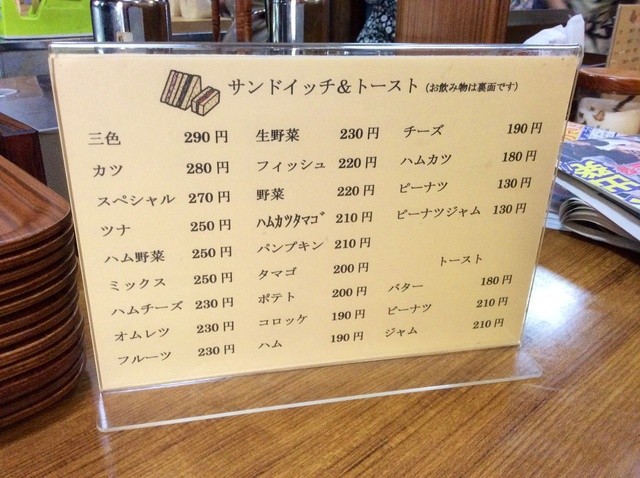 サンドイッチ&トースト (お飲み物は裏面です)
三色 290円
カツ 280円
スペシャル 270円
ツナ 250円
ハム野菜 250円
ミックス 250円
ハムチーズ 230円
オムレツ 230円
フルーツ 230円
生野菜 230円
フィッシュ 220円
野菜 220円
ハムカツタマゴ 210円
パンプキン 210円
タマゴ 200円
ポテト 200円
コロッケ 190円
ハム 190円
チーズ 190円
ハムカツ 180円
ピーナツ 130円
ピーナツジャム 130円
トースト
バター 180円
ピーナツ 210円
ジャム 210円